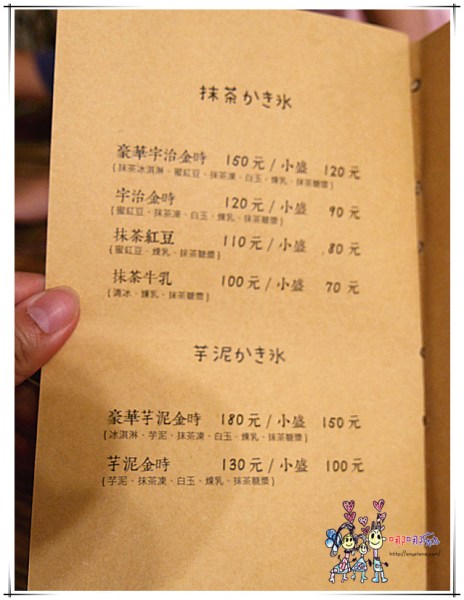 抹茶かき氷
豪華宇治金時 150元/小盛 120元
{抹茶冰淇淋、蜜紅豆、抹茶凍、白玉、煉乳、抹茶糖漿}
宇治金時 120元/小盛 90元
{蜜紅豆、抹茶凍、白玉、煉乳、抹茶糖漿}
抹茶紅豆 110元/小盛 80元
{蜜紅豆、煉乳、抹茶糖漿}
抹茶牛乳 100元/小盛 70元
{清冰、煉乳、抹茶糖漿}
芋泥かき氷
豪華芋泥金時 180元/小盛 150元
{冰淇淋、芋泥、抹茶凍、白玉、煉乳、抹茶糖漿}
芋泥金時 130元/小盛 100元
{芋泥、抹茶凍、白玉、煉乳、抹茶糖漿}